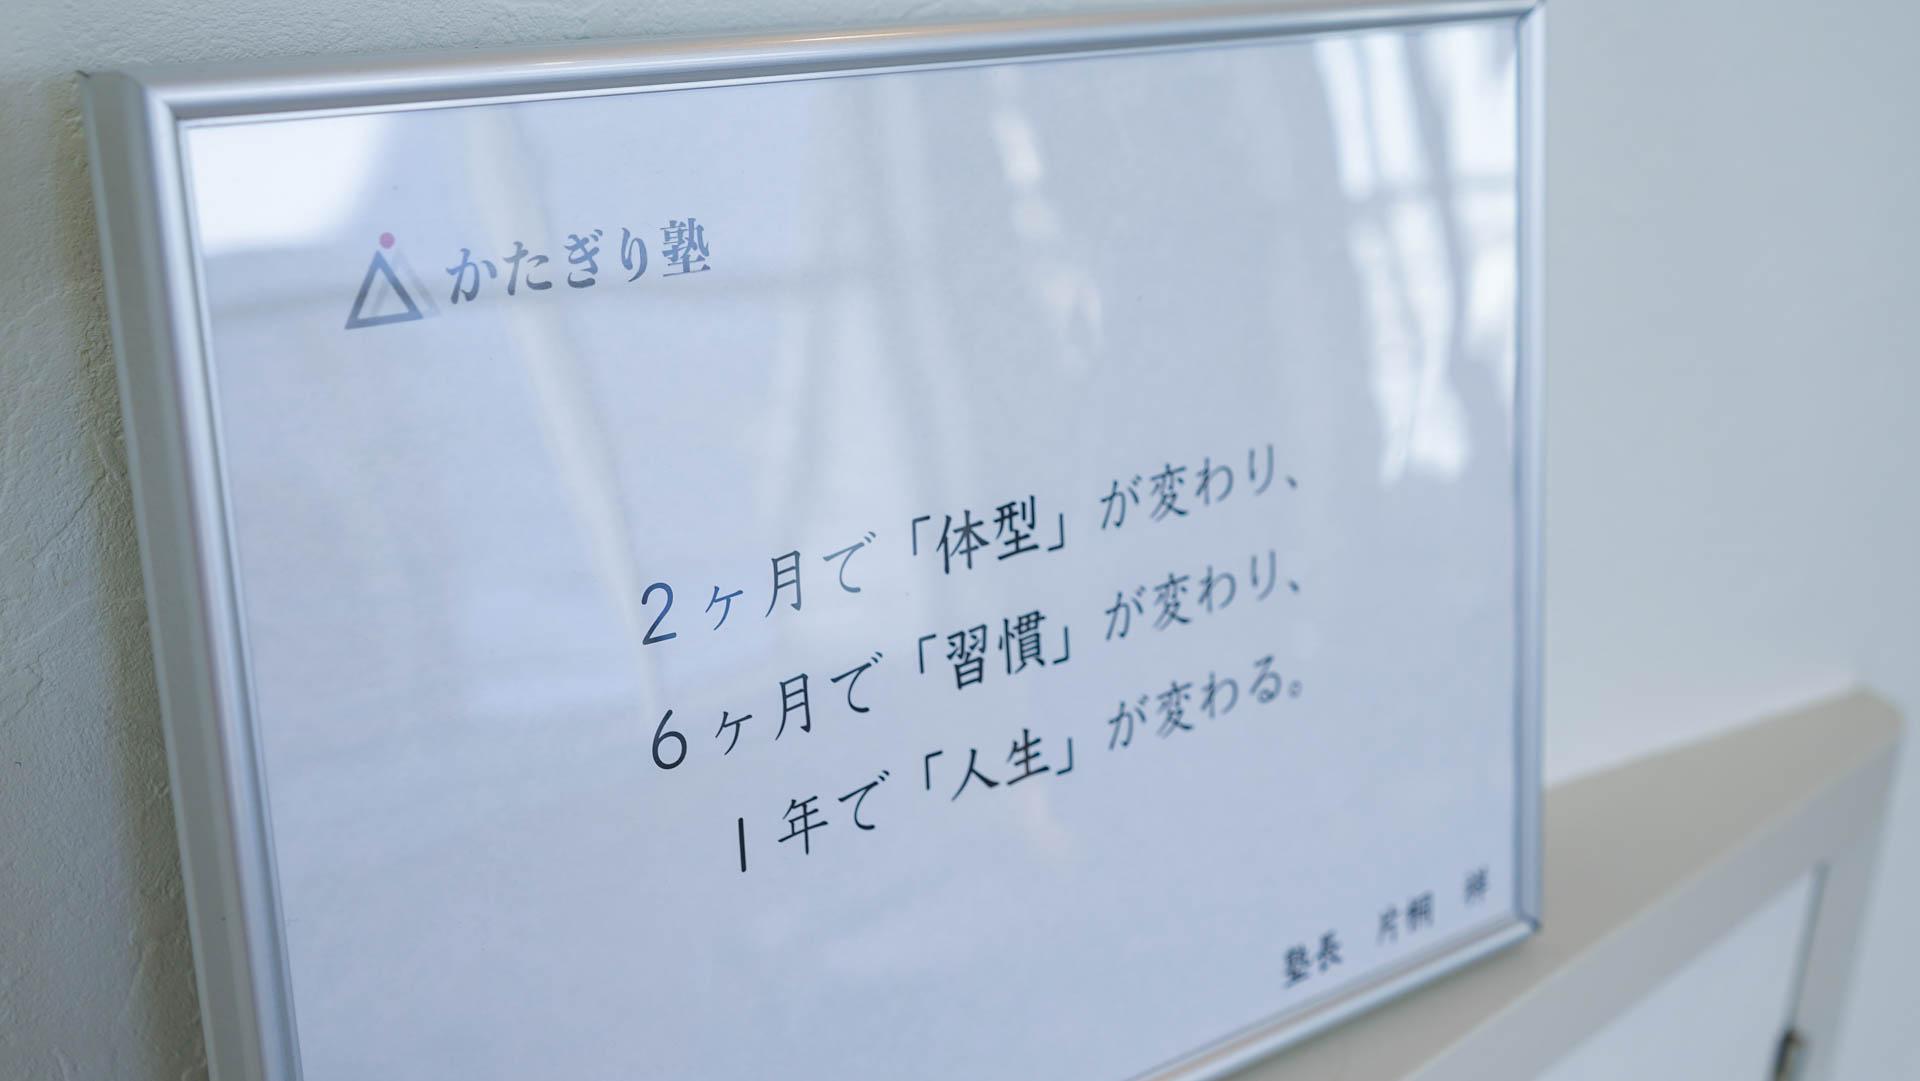 かたぎり塾
2ヶ月で「体型」が変わり、
6ヶ月で「習慣」が変わり、
1年で「人生」が変わる。
塾長 片桐